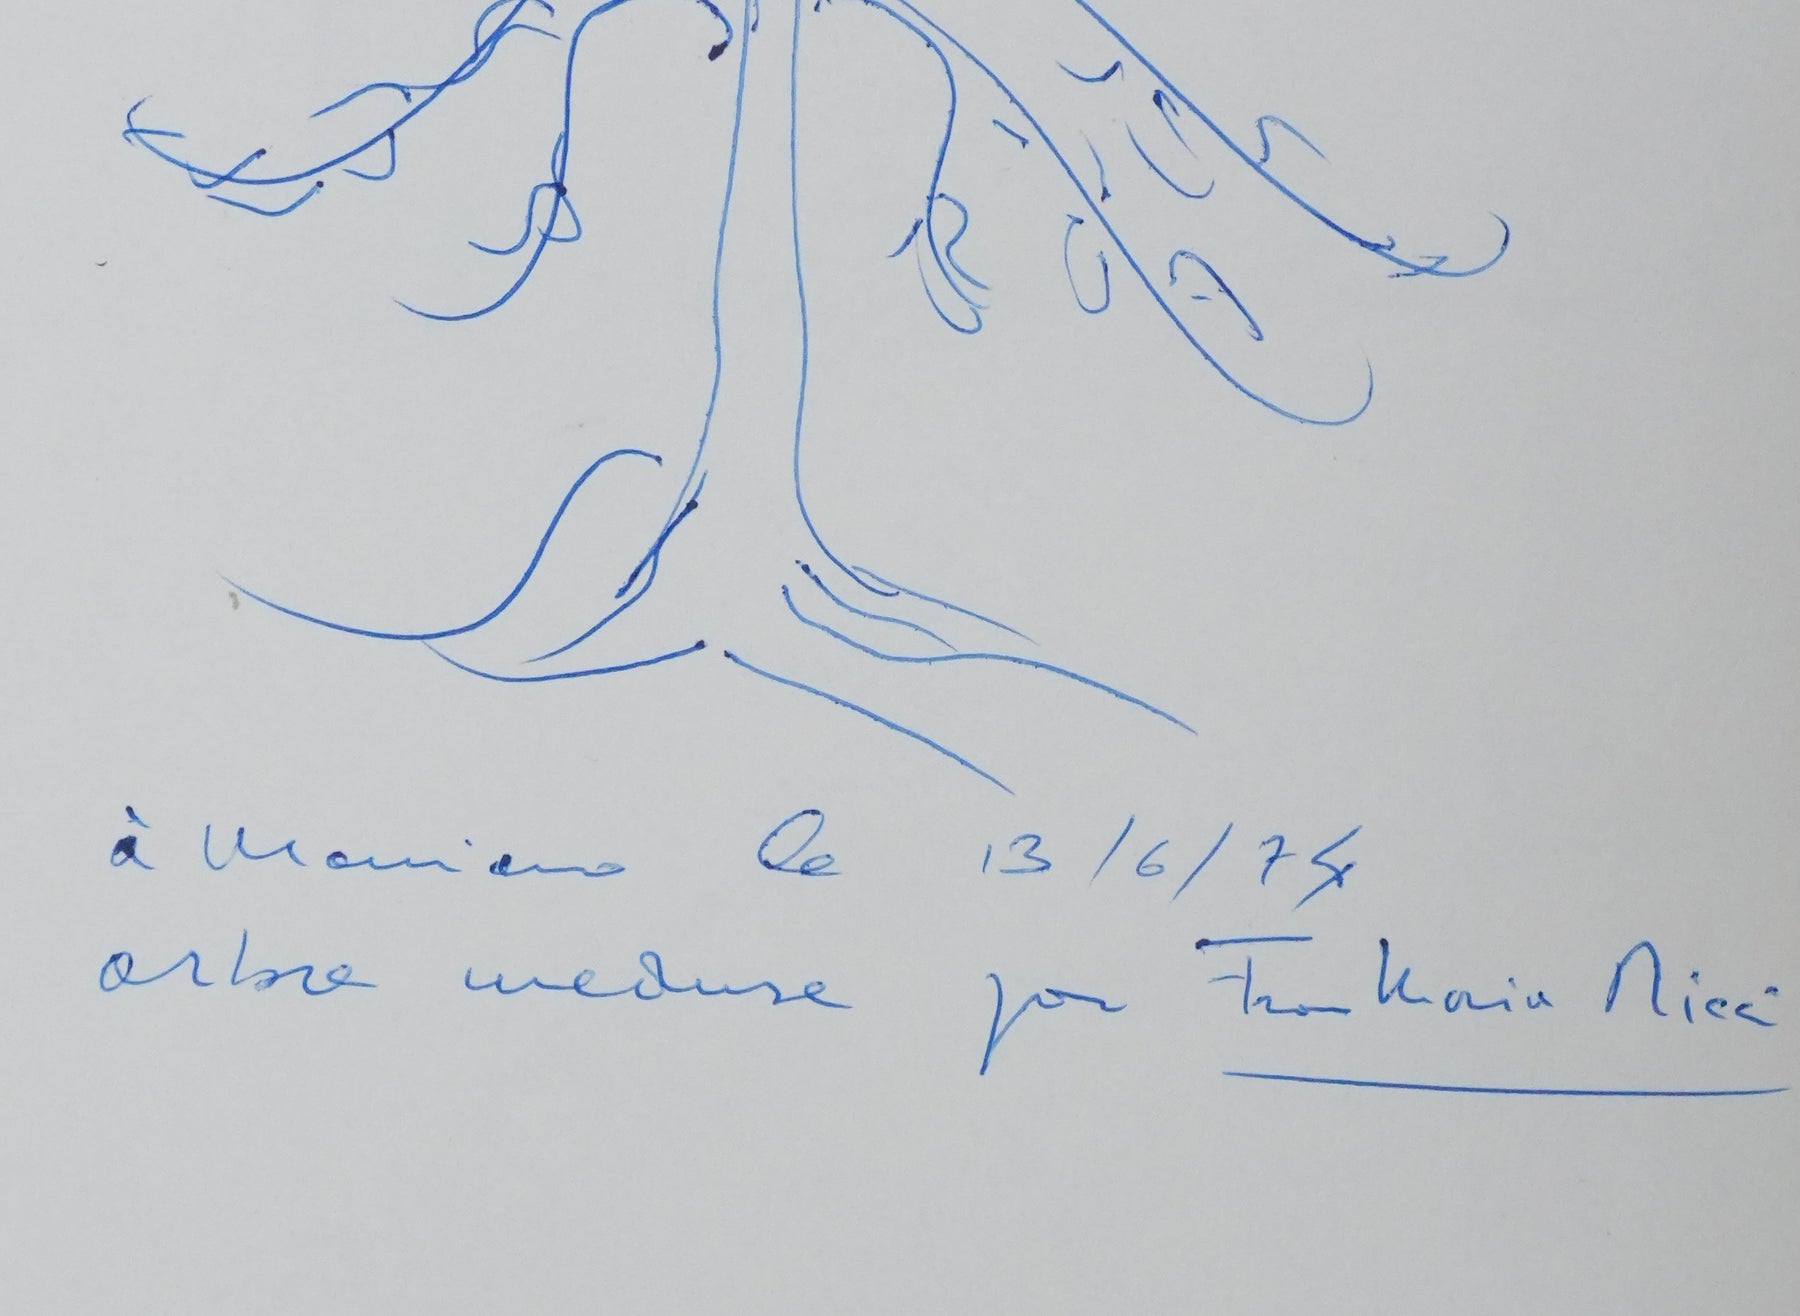 à Mariano le 13/6/74
arbre meduse par Fran Maria Ricci